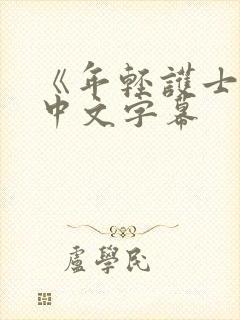 《年輕護士
中文字幕
盧學民